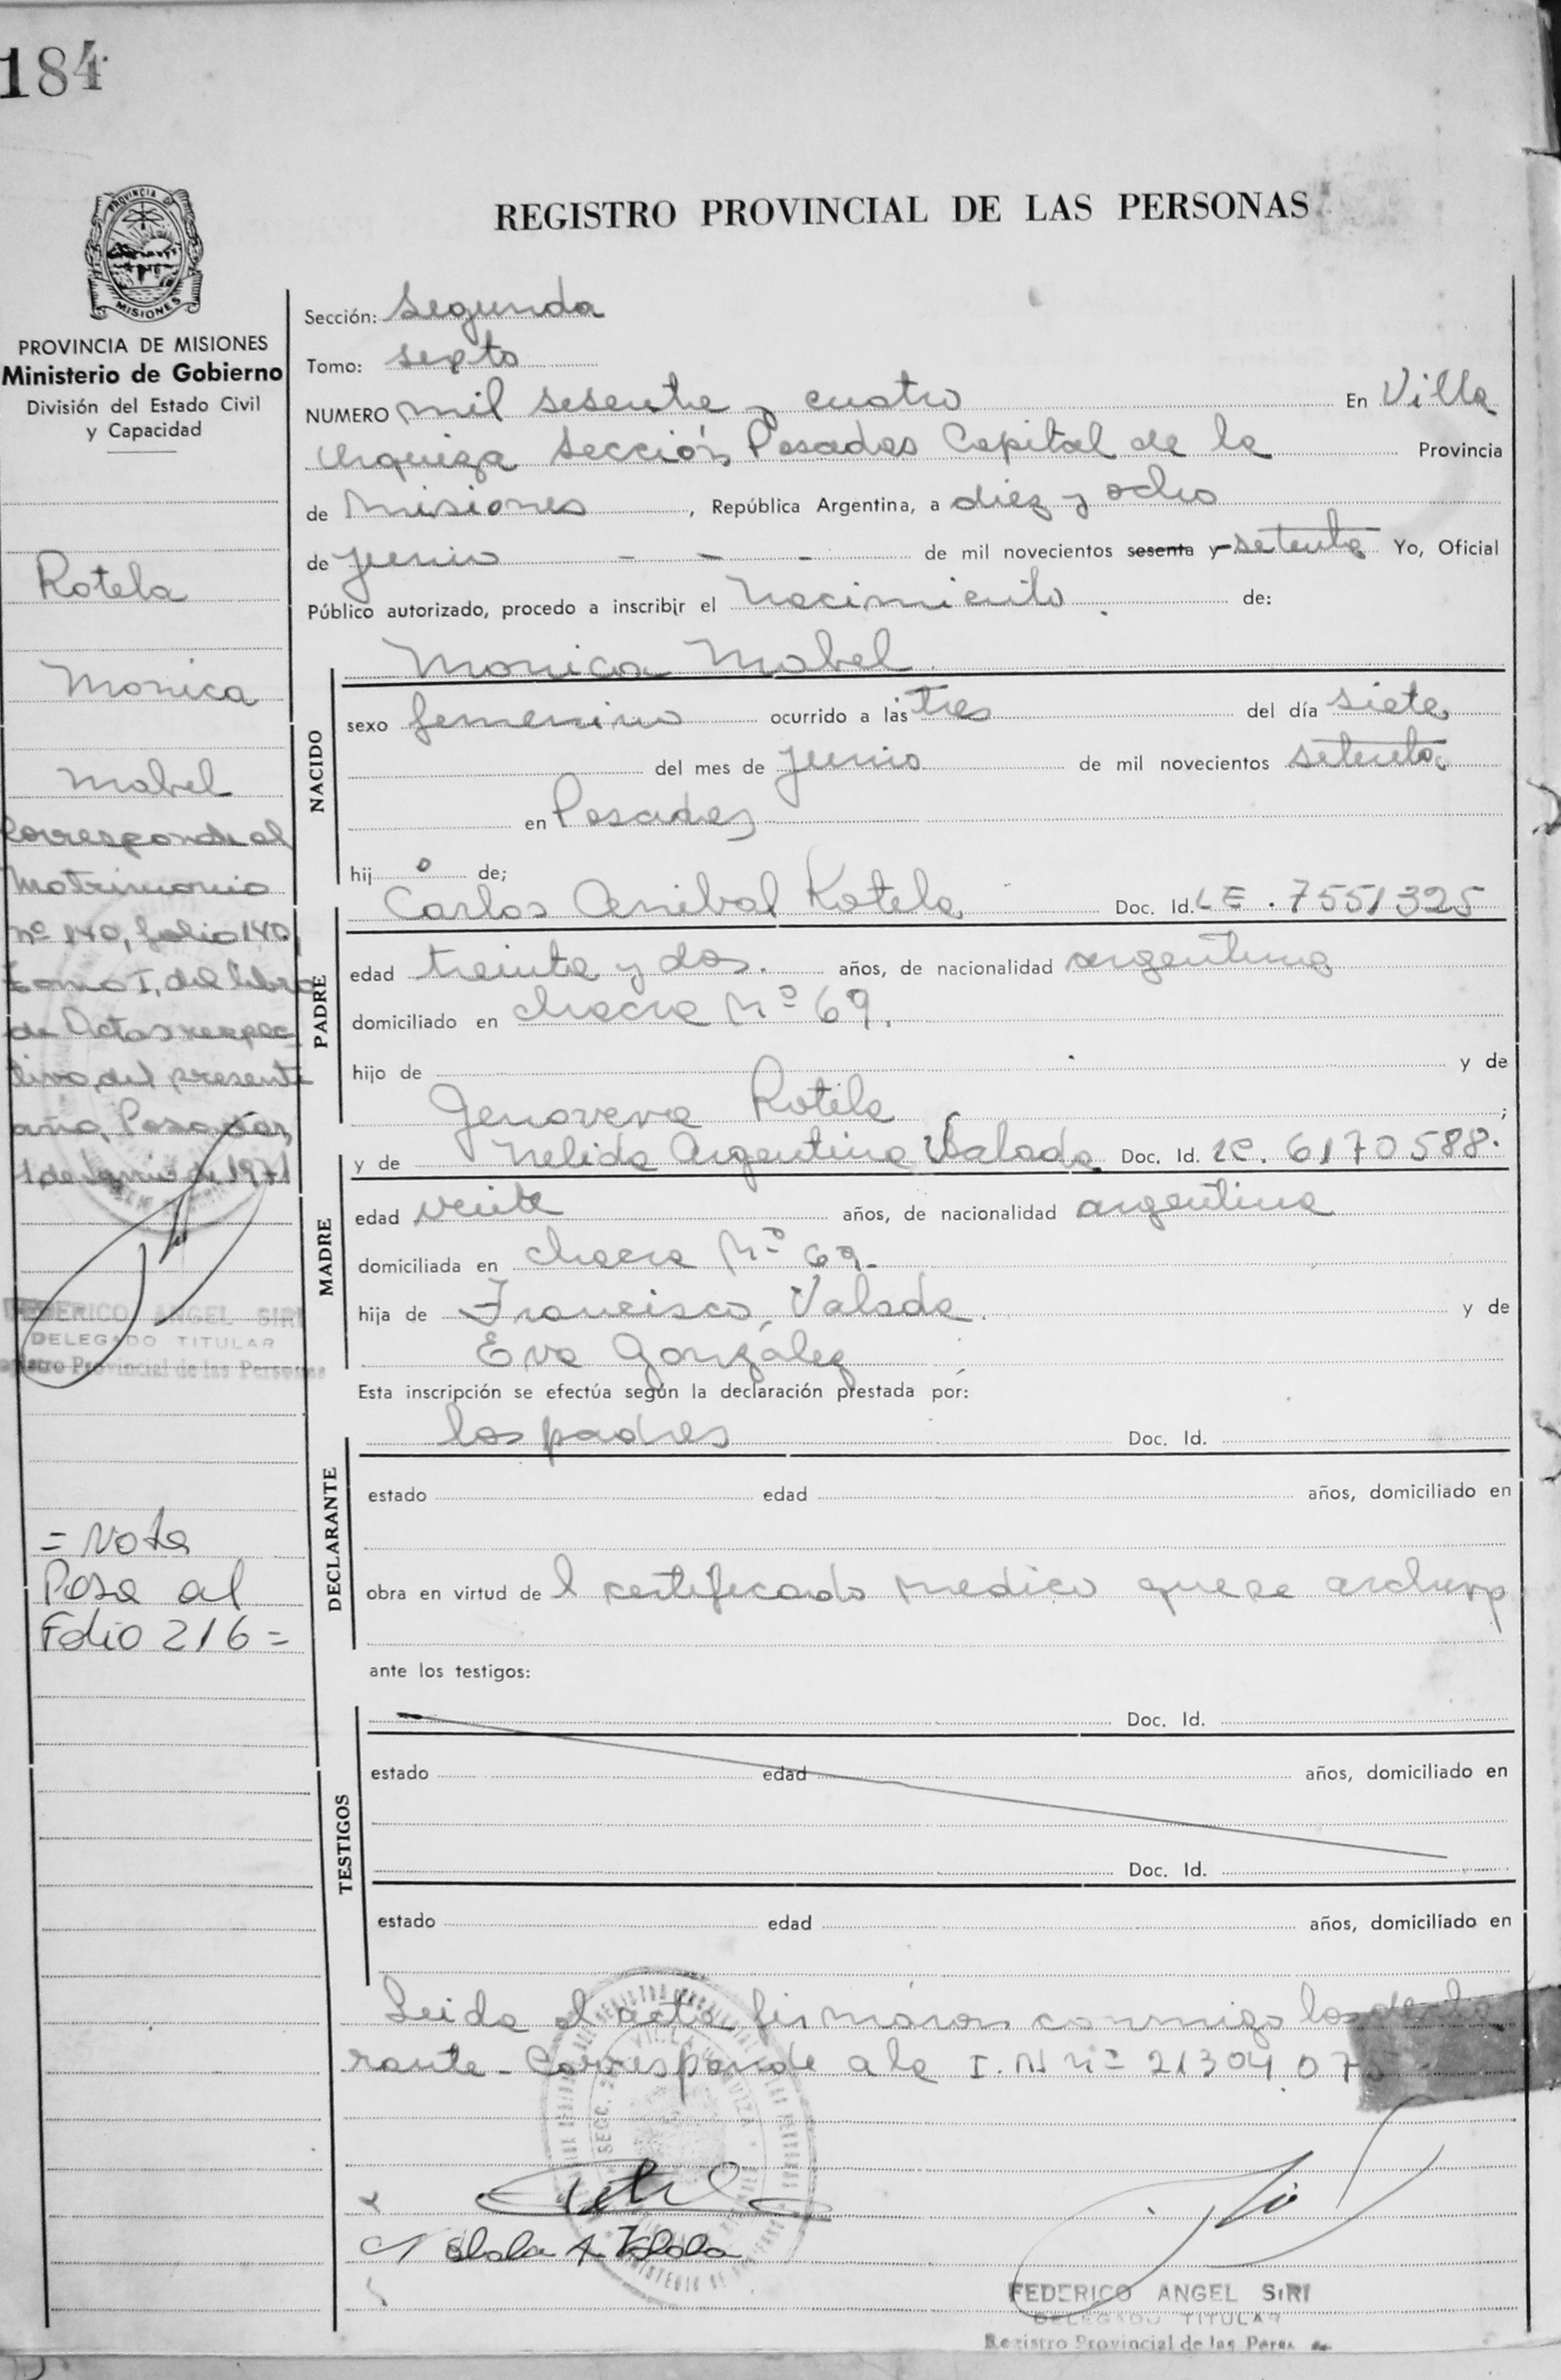 184
REGISTRO PROVINCIAL DE LAS PERSONAS
PROVINCIA DE MISIONES
Ministerio de Gobierno
División del Estado Civil
y Capacidad
Rotela
Monica
Mabel
Corresponde al
Matrimonio
nº 140, folio 140,
tomo I, del libro
de Actas respec
tivo, del presente
año, Posadas,
de 1971
FEDERICO ANGEL SIRI
DELEGADO TITULAR
Registro Provincial de las Personas
= Nota
Pasa al
Folio 216 =
Sección: Segunda
Tomo: sexto
NUMERO mil sesenta y cuatro En Villa
Urquiza Sección Posadas Capital de la Provincia
de Misiones, República Argentina, a diez y ocho
de junio - - - de mil novecientos sesenta y setenta Yo, Oficial
Público autorizado, procedo a inscribir el nacimiento de:
Monica Mabel
NACIDO
sexo femenino ocurrido a las tres del día siete
del mes de junio de mil novecientos setenta
en Posadas
hij o de;
Carlos Anibal Rotela Doc. Id. LE. 7551325
PADRE
edad treinta y dos. años, de nacionalidad argentina
domiciliado en chacra Nº 69.
hijo de y de
Genoveva Rotela ;
y de Nelida Argentina Valada Doc. Id. lc. 6170588.
MADRE
edad veinte años, de nacionalidad argentina
domiciliada en chacra Nº 69-
hija de Francisco Valada y de
Eva González
Esta inscripción se efectúa según la declaración prestada por:
los padres Doc. Id.
DECLARANTE
estado edad años, domiciliado en
obra en virtud de l certificado medico que se archiva
ante los testigos:
Doc. Id.
TESTIGOS
estado edad años, domiciliado en
Doc. Id.
estado edad años, domiciliado en
Leida el acta firmaron conmigo los decla
rante - Corresponde a la I. N nº 21304.075
FEDERICO ANGEL SIRI
DELEGADO TITULAR
Registro Provincial de las Pers